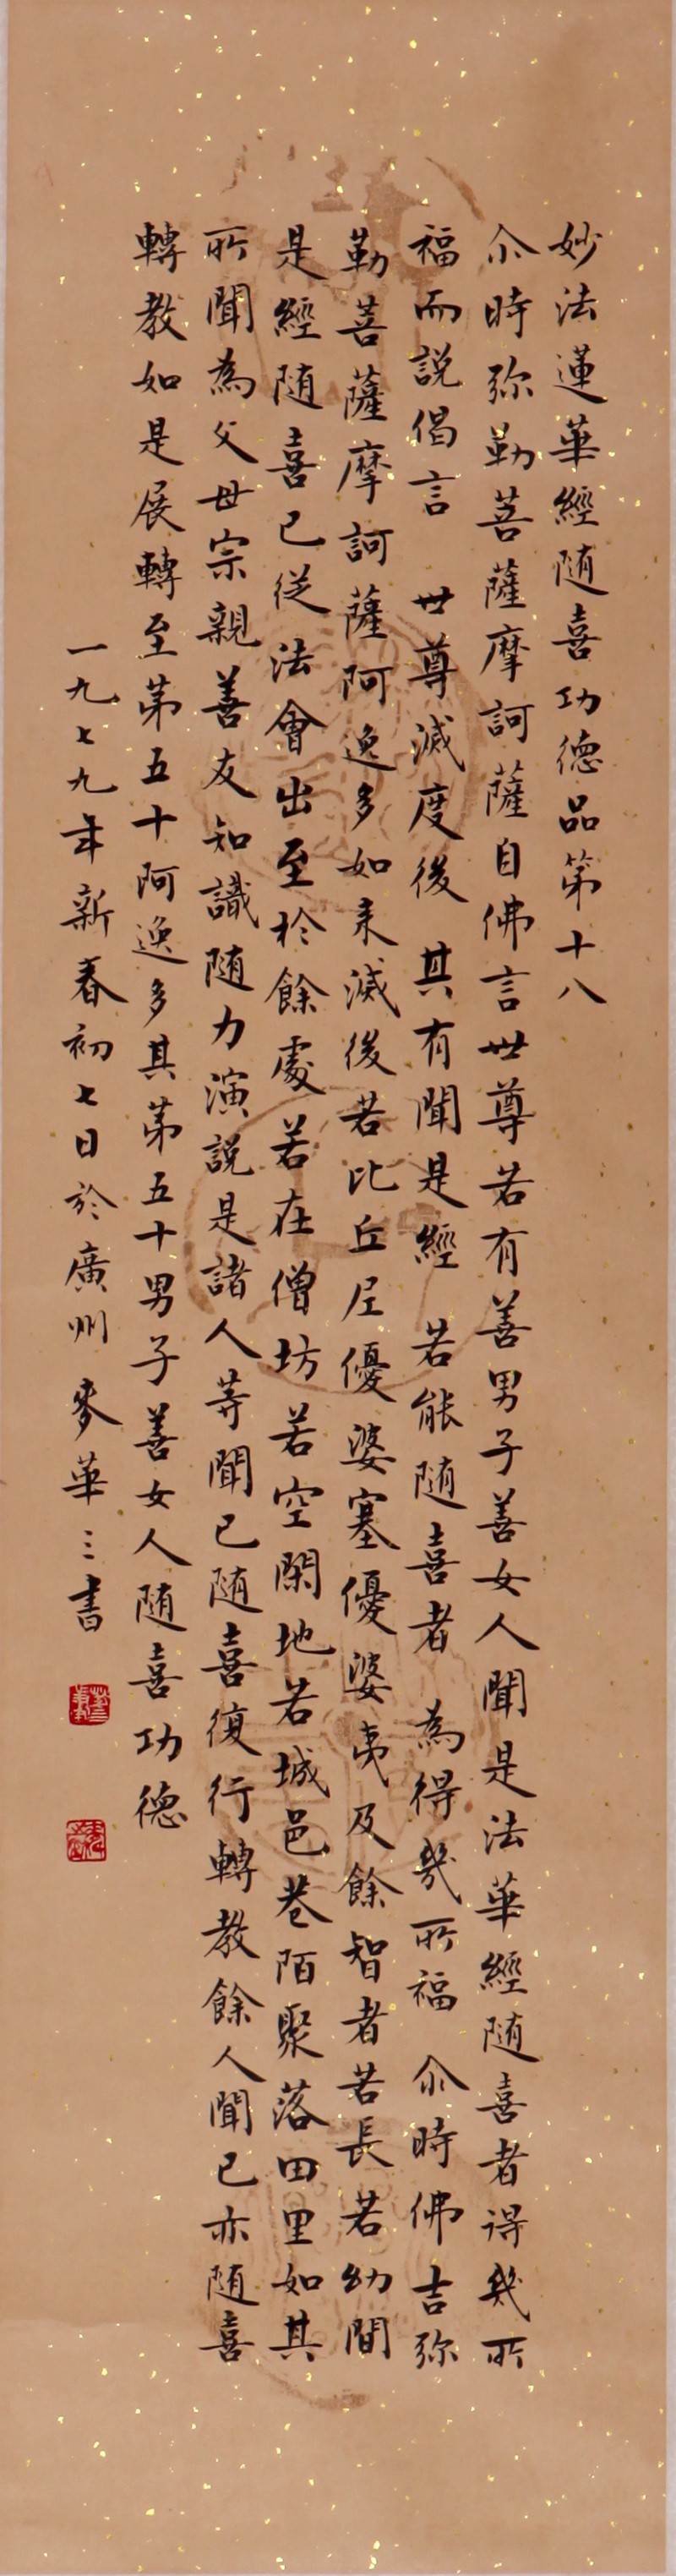 妙法蓮華經随喜功德品第十八
尒時弥勒菩薩摩訶薩白佛言世尊若有善男子善女人聞是法華經随喜者得幾所
福而説偈言 世尊滅度後 其有聞是經 若能随喜者 為得幾所福 尒時佛吉弥
勒菩薩摩訶薩阿逸多如来滅後若比丘尼優婆塞優婆夷及餘智者若長若幼聞
是經随喜已従法會出至於餘處若在僧坊若空閑地若城邑巷陌聚落田里如其
所聞為父母宗親善友知識随力演説是諸人等聞已随喜復行轉教餘人聞已亦随喜
轉教如是展轉至第五十阿逸多其第五十男子善女人随喜功德
一九七九年新春初七日於廣州 麥華三書